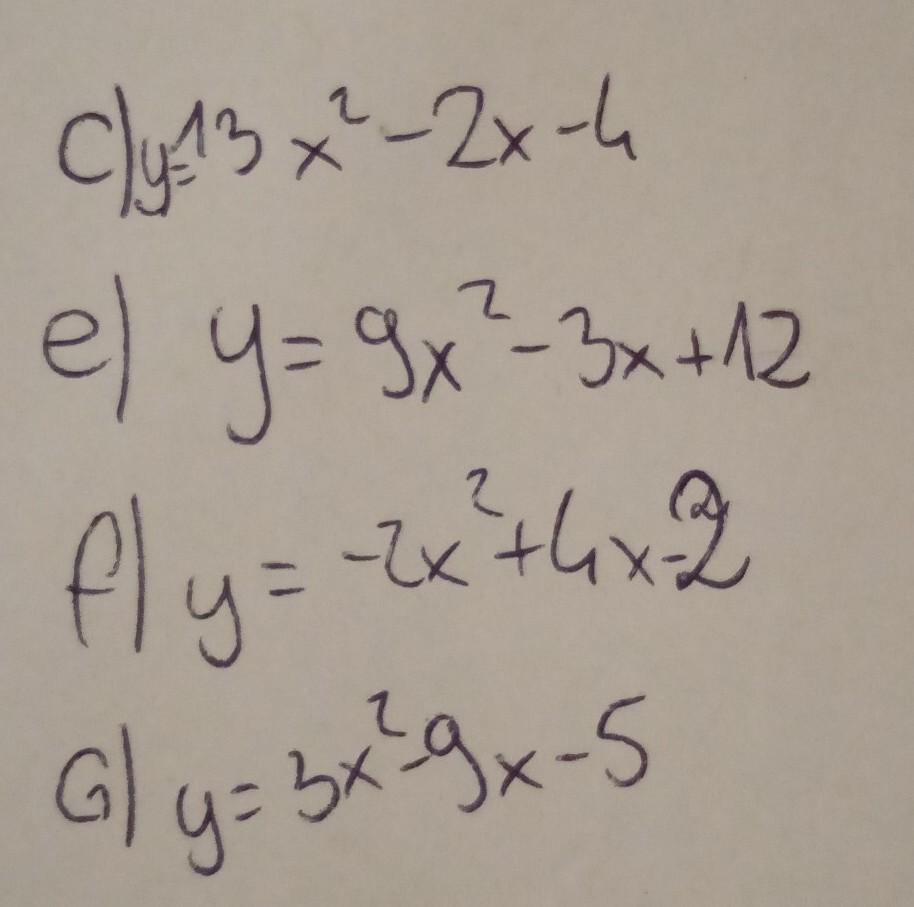 c) y=13x²-2x-4
e) y=9x²-3x+12
f) y=-2x²+4x-2
G) y=3x²-9x-5